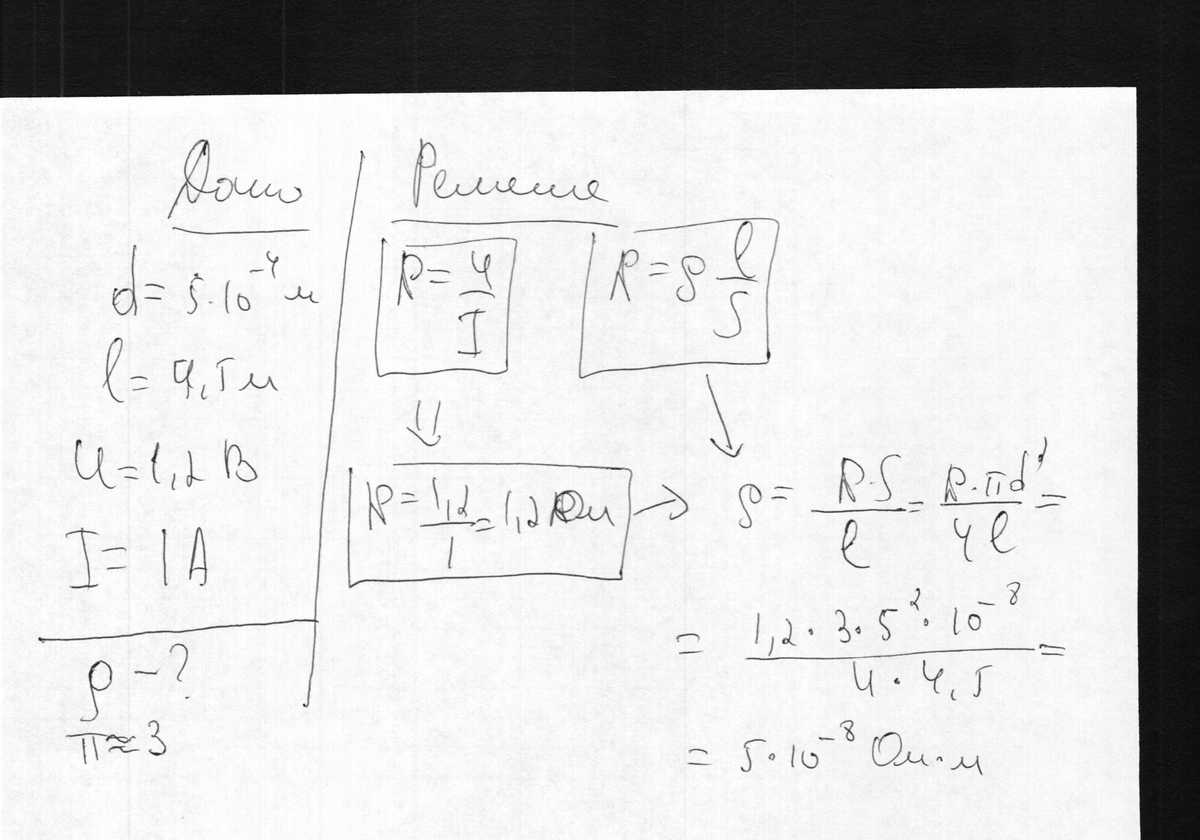 Дано
d = 5·10⁻⁴ м
l = 4,5 м
U = 1,2 В
I = 1 А
ρ - ?
π ≈ 3
Решение
R = U/I
R = ρ l/S
R = 1,2/1 = 1,2 Ом
ρ = R·S/l = R·πd²/4l =
= 1,2·3·5²·10⁻⁸/4·4,5 =
= 5·10⁻⁸ Ом·м